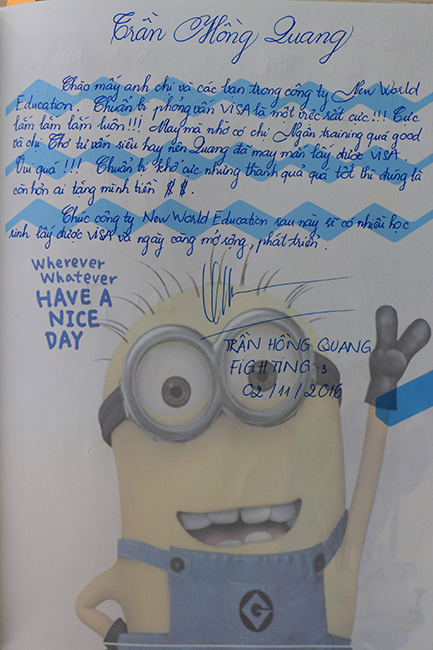 Trần Hồng Quang
Chào mấy anh chị và các bạn trong công ty New World
Education. Chuẩn bị phỏng vấn VISA là một việc rất cực!!! Cực
lắm lắm lắm luôn!!! May mà nhờ có chị Ngân training quá good
và chị Thơ tư vấn siêu hay nên Quang đã may mắn lấy được VISA.
Vui quá!!! Chuẩn bị khổ cực nhưng thành quả quá tốt thì đúng là
còn hơn ai tặng mình tiền $ $.
Chúc công ty New World Education sau này sẽ có nhiều học
sinh lấy được VISA và ngày càng mở rộng, phát triển.
Wherever
Whatever
HAVE A
NICE
DAY
TRẦN HỒNG QUANG
FIGHTING :3
02/11/2016
G